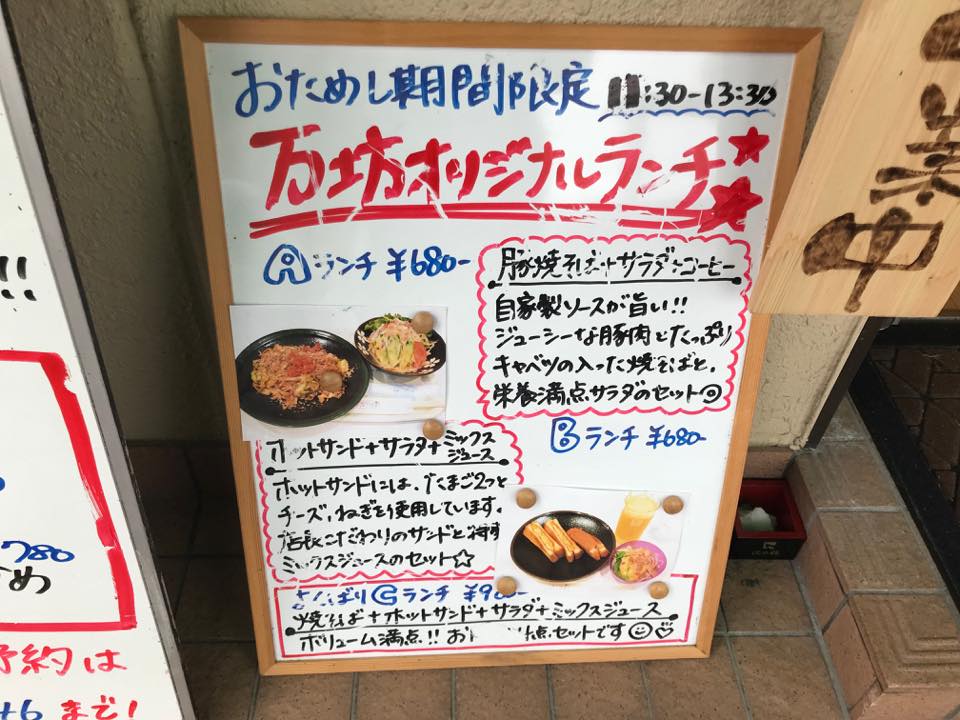 おためし期間限定 11:30-13:30
万坊オリジナルランチ
Aランチ ¥680-
豚焼そば+サラダ+コーヒー
自家製ソースが旨い!!
ジューシーな豚肉とたっぷり
キャベツの入った焼そばと、
栄養満点サラダのセット
Bランチ ¥680-
ホットサンド+サラダ+ミックスジュース
ホットサンドには、たまご2つと
チーズ、ねぎを使用しています。
店長こだわりのサンドと特製
ミックスジュースのセット☆
Cランチ ¥9
焼そば+ホットサンド+サラダ+ミックスジュース
ボリューム満点!! お 点セットです
!!
780
め
予約は
まで!
中